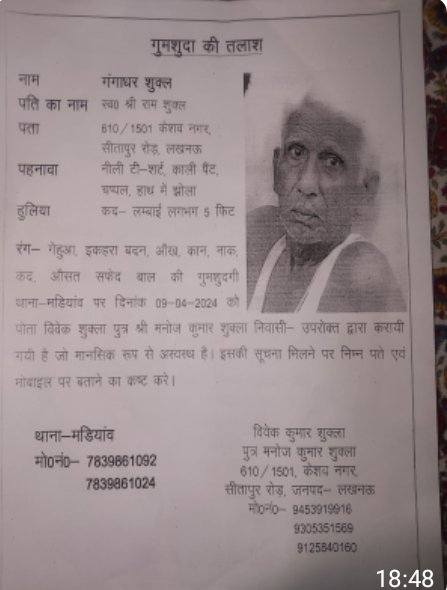 गुमशुदा की तलाश
नाम गंगाधर शुक्ल
पति का नाम स्व० श्री राम शुक्ल
पता 610/1501 केशव नगर,
सीतापुर रोड़, लखनऊ
पहनावा नीली टी-शर्ट, काली पैंट,
चप्पल, हाथ में झोला
हुलिया कद- लम्बाई लगभग 5 फिट
रंग- गेहुआ, इकहरा बदन, आँख, कान, नाक,
कद, औसत सफेद बाल की गुमशुदगी
थाना-मडियांव पर दिनांक 09-04-2024 को
पोता विवेक शुक्ला पुत्र श्री मनोज कुमार शुक्ला निवासी- उपरोक्त द्वारा करायी
गयी है जो मानसिक रूप से अस्वस्थ है। इसकी सूचना मिलने पर निम्न पते एवं
मोबाइल पर बताने का कष्ट करे।
थाना-मडियांव
मो0नं0- 7839861092
7839861024
विवेक कुमार शुक्ला
पुत्र मनोज कुमार शुक्ला
610/1501, केशव नगर,
सीतापुर रोड़, जनपद- लखनऊ
मो0नं0- 9453919916
9305351569
9125840160
18:48